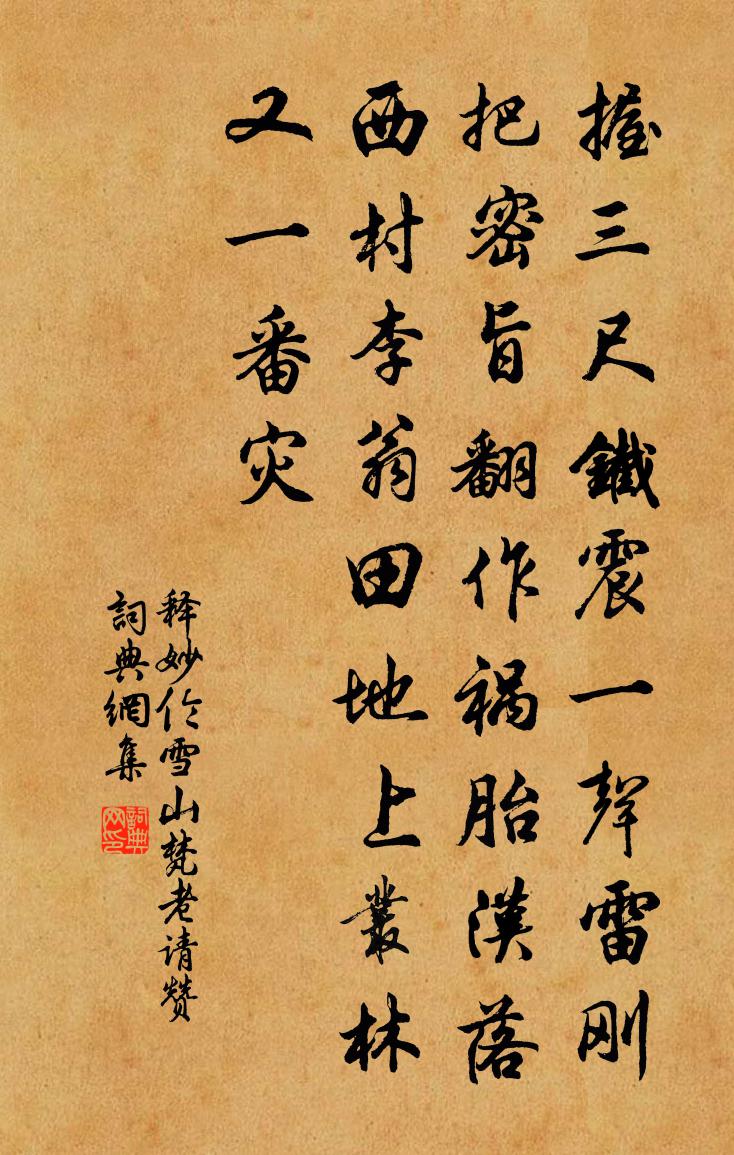 握三尺鐵震一聲雷剛
把密旨翻作禍胎漢落
西村李翁田地上叢林
又一番灾
释妙伦雪山梵老请赞
詞典網集
詞典网印